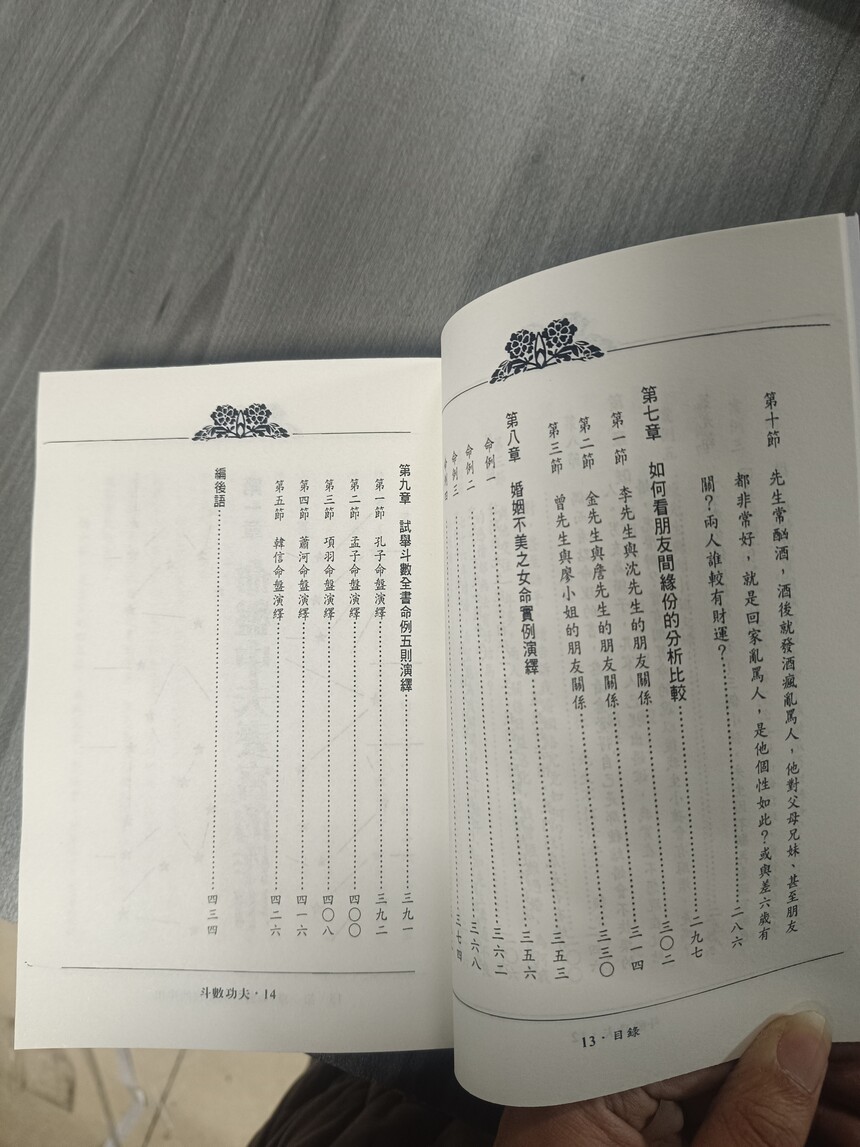 第十節　先生常酗酒，酒後就發酒瘋亂罵人，他對父母兄妹、甚至朋友
都非常好，就是回家亂罵人，是他個性如此？或與差六歲有
關？兩人誰較有財運？⋯⋯二八六
第七章　如何看朋友間緣份的分析比較⋯⋯二九七
第一節　李先生與沈先生的朋友關係⋯⋯三〇二
第二節　金先生與詹先生的朋友關係⋯⋯三一四
第三節　曾先生與廖小姐的朋友關係⋯⋯三三〇
第八章　婚姻不美之女命實例演繹⋯⋯三五三
命例一⋯⋯三五六
命例二⋯⋯三六二
命例三⋯⋯三六八
命例四⋯⋯三七四
13·目錄
第九章　試舉斗數全書命例五則演繹⋯⋯三九一
第一節　孔子命盤演繹⋯⋯三九二
第二節　孟子命盤演繹⋯⋯四〇〇
第三節　項羽命盤演繹⋯⋯四〇八
第四節　蕭何命盤演繹⋯⋯四一六
第五節　韓信命盤演繹⋯⋯四二六
編後語⋯⋯四三四
斗數功夫·14